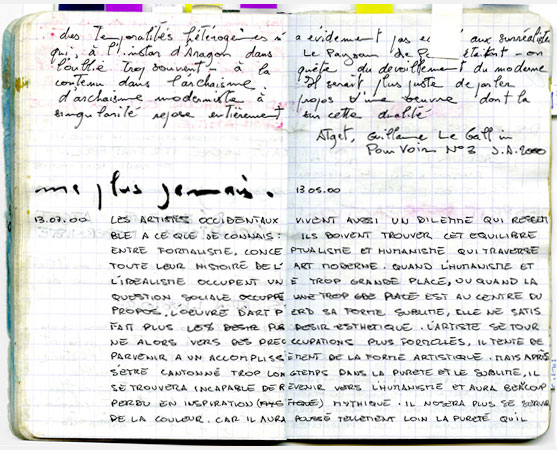 des temporalités hétérogènes n'a évidemment pas aux surréalistes
qui, à l'instar d'Aragon dans Le Paysan de étaient - on
l'oublie trop souvent - à la quête du dévoilement du moderne
contenu dans l'archaïsme. Il serait plus juste de parler
d'archaïsme moderniste à propos d'une oeuvre dont la
singularité repose entièrement sur cette dualité
Atget, Guillaume Le Gall in
Pour Voir N°3 J.A. 2000
me plus jamais.
13.05.00
13.07.00 LES ARTISTES OCCIDENTAUX VIVENT AUSSI UN DILEMME QUI RESSEM
BLE A CE QUE JE CONNAIS: ILS DOIVENT TROUVER CET EQUILIBRE
ENTRE FORMALISME, CONCEPTUALISME ET HUMANISME QUI TRAVERSE
TOUTE LEUR HISTOIRE DE L'ART MODERNE. QUAND L'HUMANISME ET
L'IDEALISME OCCUPENT UNE TROP GRANDE PLACE, OU QUAND LA
QUESTION SOCIALE OCCUPE UNE TROP GDE PLACE EST AU CENTRE DU
PROPOS, L'OEUVRE D'ART PERD SA FORME SUBLIME, ELLE NE SATIS
FAIT PLUS LES DESIR PUR DESIR ESTHETIQUE. L'ARTISTE SE TOUR
NE ALORS VERS DES PREOCCUPATIONS PLUS FORMELLES, IL TENTE DE
PARVENIR A UN ACCOMPLISSEMENT DE LA FORME ARTISTIQUE. MAIS APRÈS
S'ETRE CANTONNÉ TROP LONGTEMPS DANS LA PURETÉ ET LE SUBLIME, IL
SE TROUVERA INCAPABLE DE REVENIR VERS L'HUMANISME ET AURA BEAUCOUP
PERDU EN INSPIRATION MYTHIQUE. IL N'OSERA PLUS SE SERVIR
DE LA COULEUR. CAR IL AURA POUSSÉ TELLEMENT LOIN LA PURETÉ QU'IL